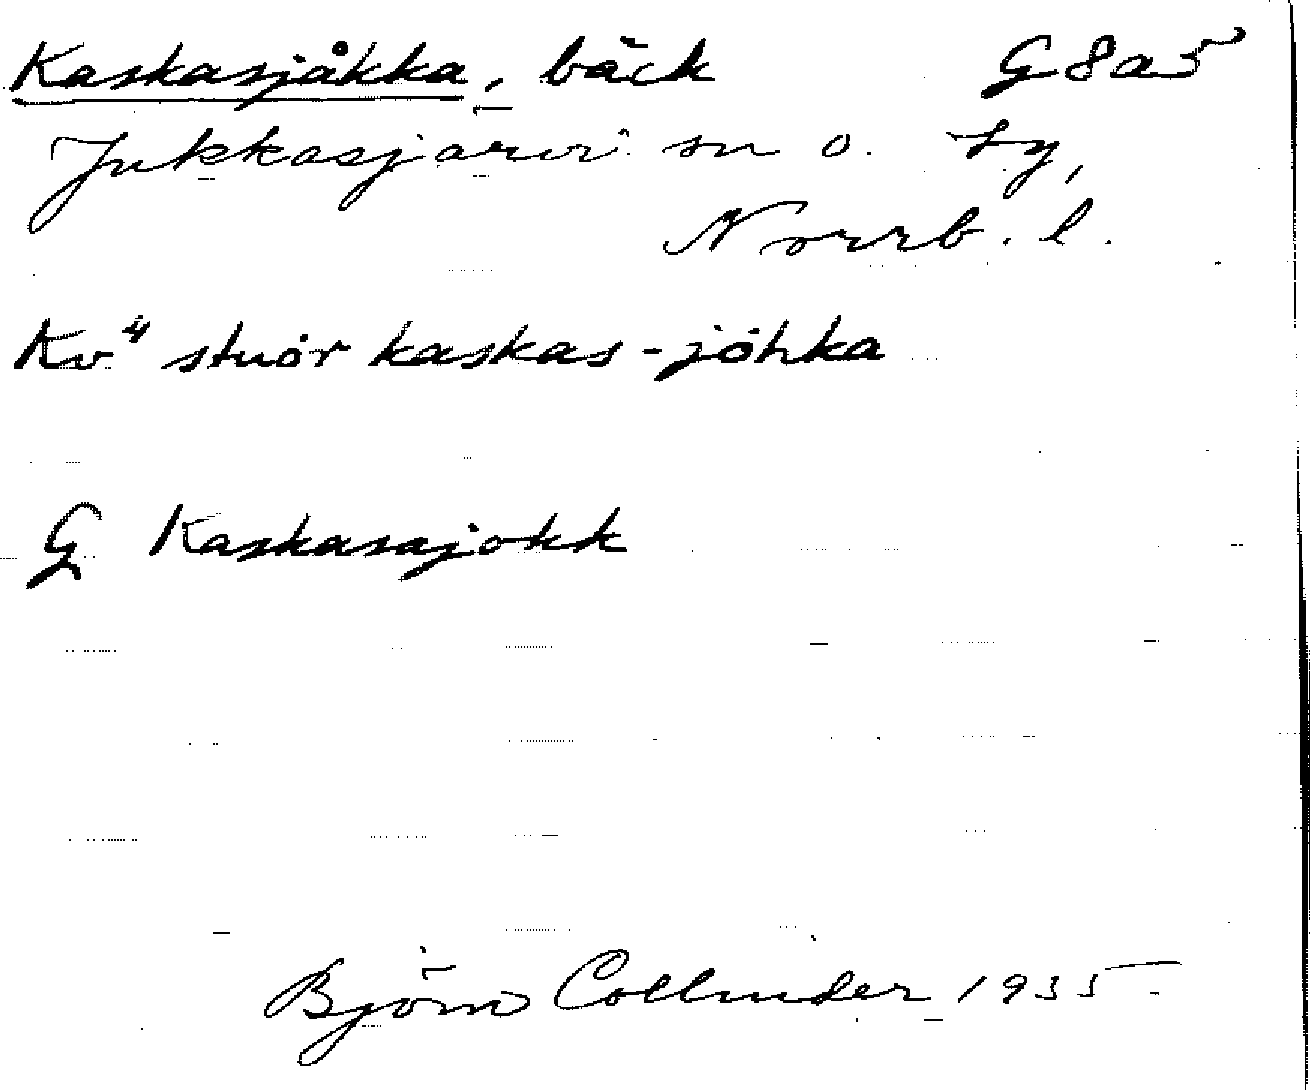 Kaskasjåkka, bäck G 8 a 5
Jukkasjärvi sn o. ty,
Norrb. l.
Kv 4 stuór kaskas-jóhka
G Kaskasajokk
Björn Collinder 1935